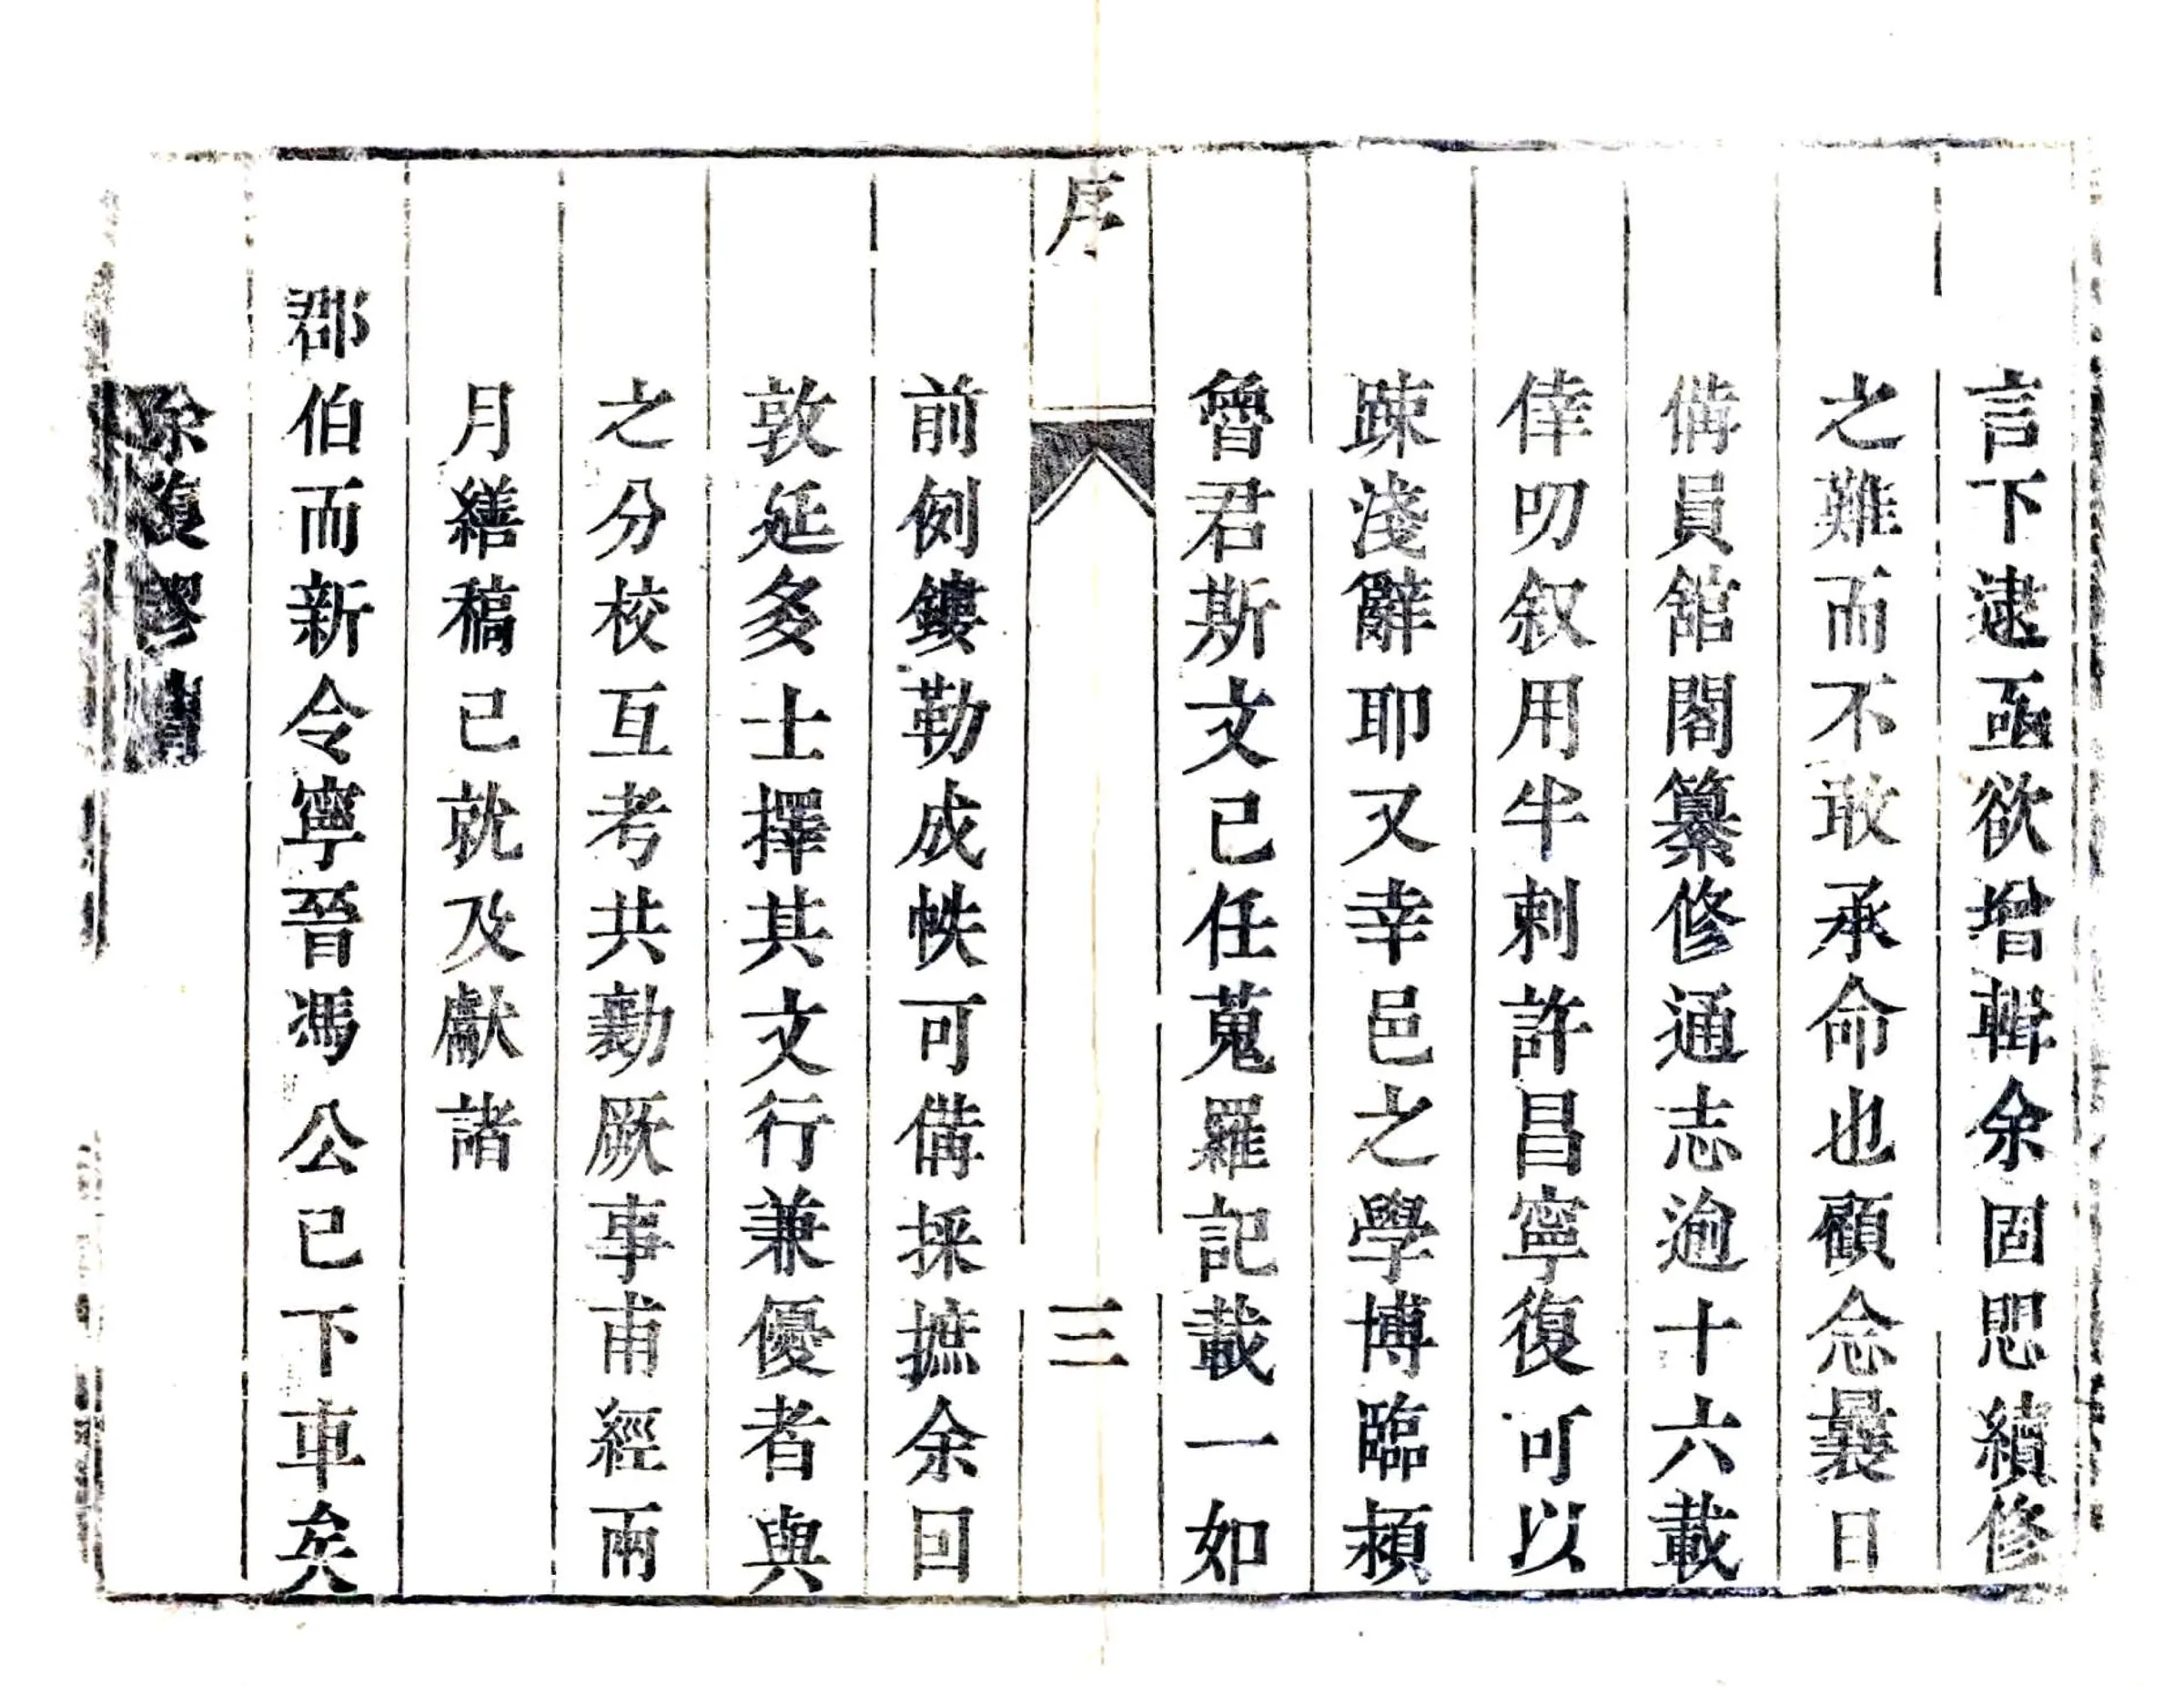 言下逮亟欲增輯余固思續修
之難而不敢承命也顧念曩日
俻員舘閣纂修通志逾十六載
倖叨叙用牛刺許昌寧復可以
踈淺辭耶又幸邑之學博臨潁
曾君斯文已任蒐羅記載一如
序
三
前例鏤勒成帙可俻採摭余囙
敦延多士擇其文行兼優者與
之分校互考共勷厥事甫經兩
月繕稿已就及獻諸
郡伯而新令寧晉馮公已下車矣
除